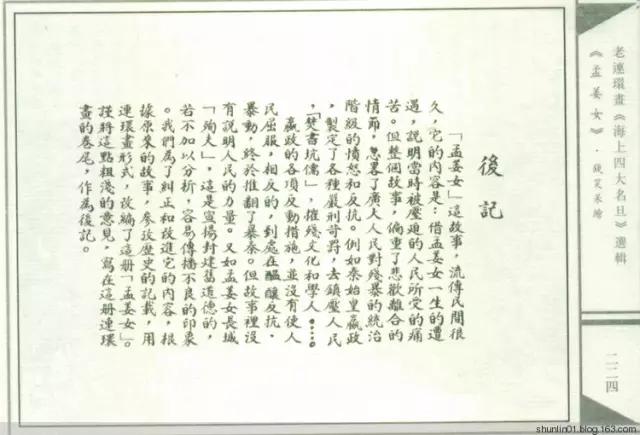 後記
「孟姜女」這故事，流傳民間很
久，它的內容是：借孟姜女一生的遭
遇，說明當時被壓迫的人民所受的痛
苦。但整個故事，偏重了悲歡離合的
情節，忽畧了廣大人民對殘暴的統治
階級的憤怒和反抗。例如秦始皇嬴政
，製定了各種嚴刑苛罰，去鎮壓人民
，「焚書坑儒」，摧殘文化和學人。……
嬴政的各項反動措施，並沒有使人
民屈服，相反的，到處在醞釀反抗·
暴動，終於推翻了暴秦。但故事裡沒
有說明人民的力量。又如孟姜女長城
「殉夫」，這是宣揚封建舊道德的，
若不加以分析，容易傳播不良的印象
。我們為了糾正和改進它的內容，根
據原來的故事，參攷歷史的記載，用
連環畫形式，改編了這册「孟姜女」。
謹將這點粗淺的意見，寫在這册連環
畫的卷尾，作為後記。
老連環畫《海上四大名旦》選輯
《孟姜女》·錢笑呆繪
一二四
shunlin01.blog.163.com